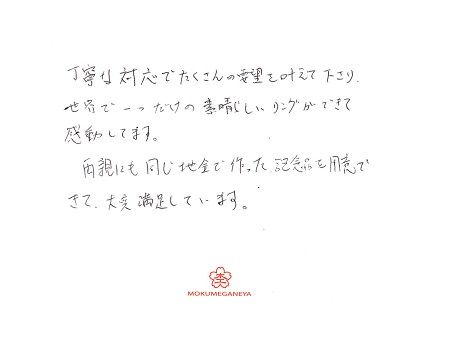 丁寧な対応でたくさんの要望を叶えて下さり、
世界で一つだけの素晴らしいリングができて
感動してます。
両親にも同じ地金で作った記念品を用意で
きて、大変満足しています。
MOKUMEGANEYA